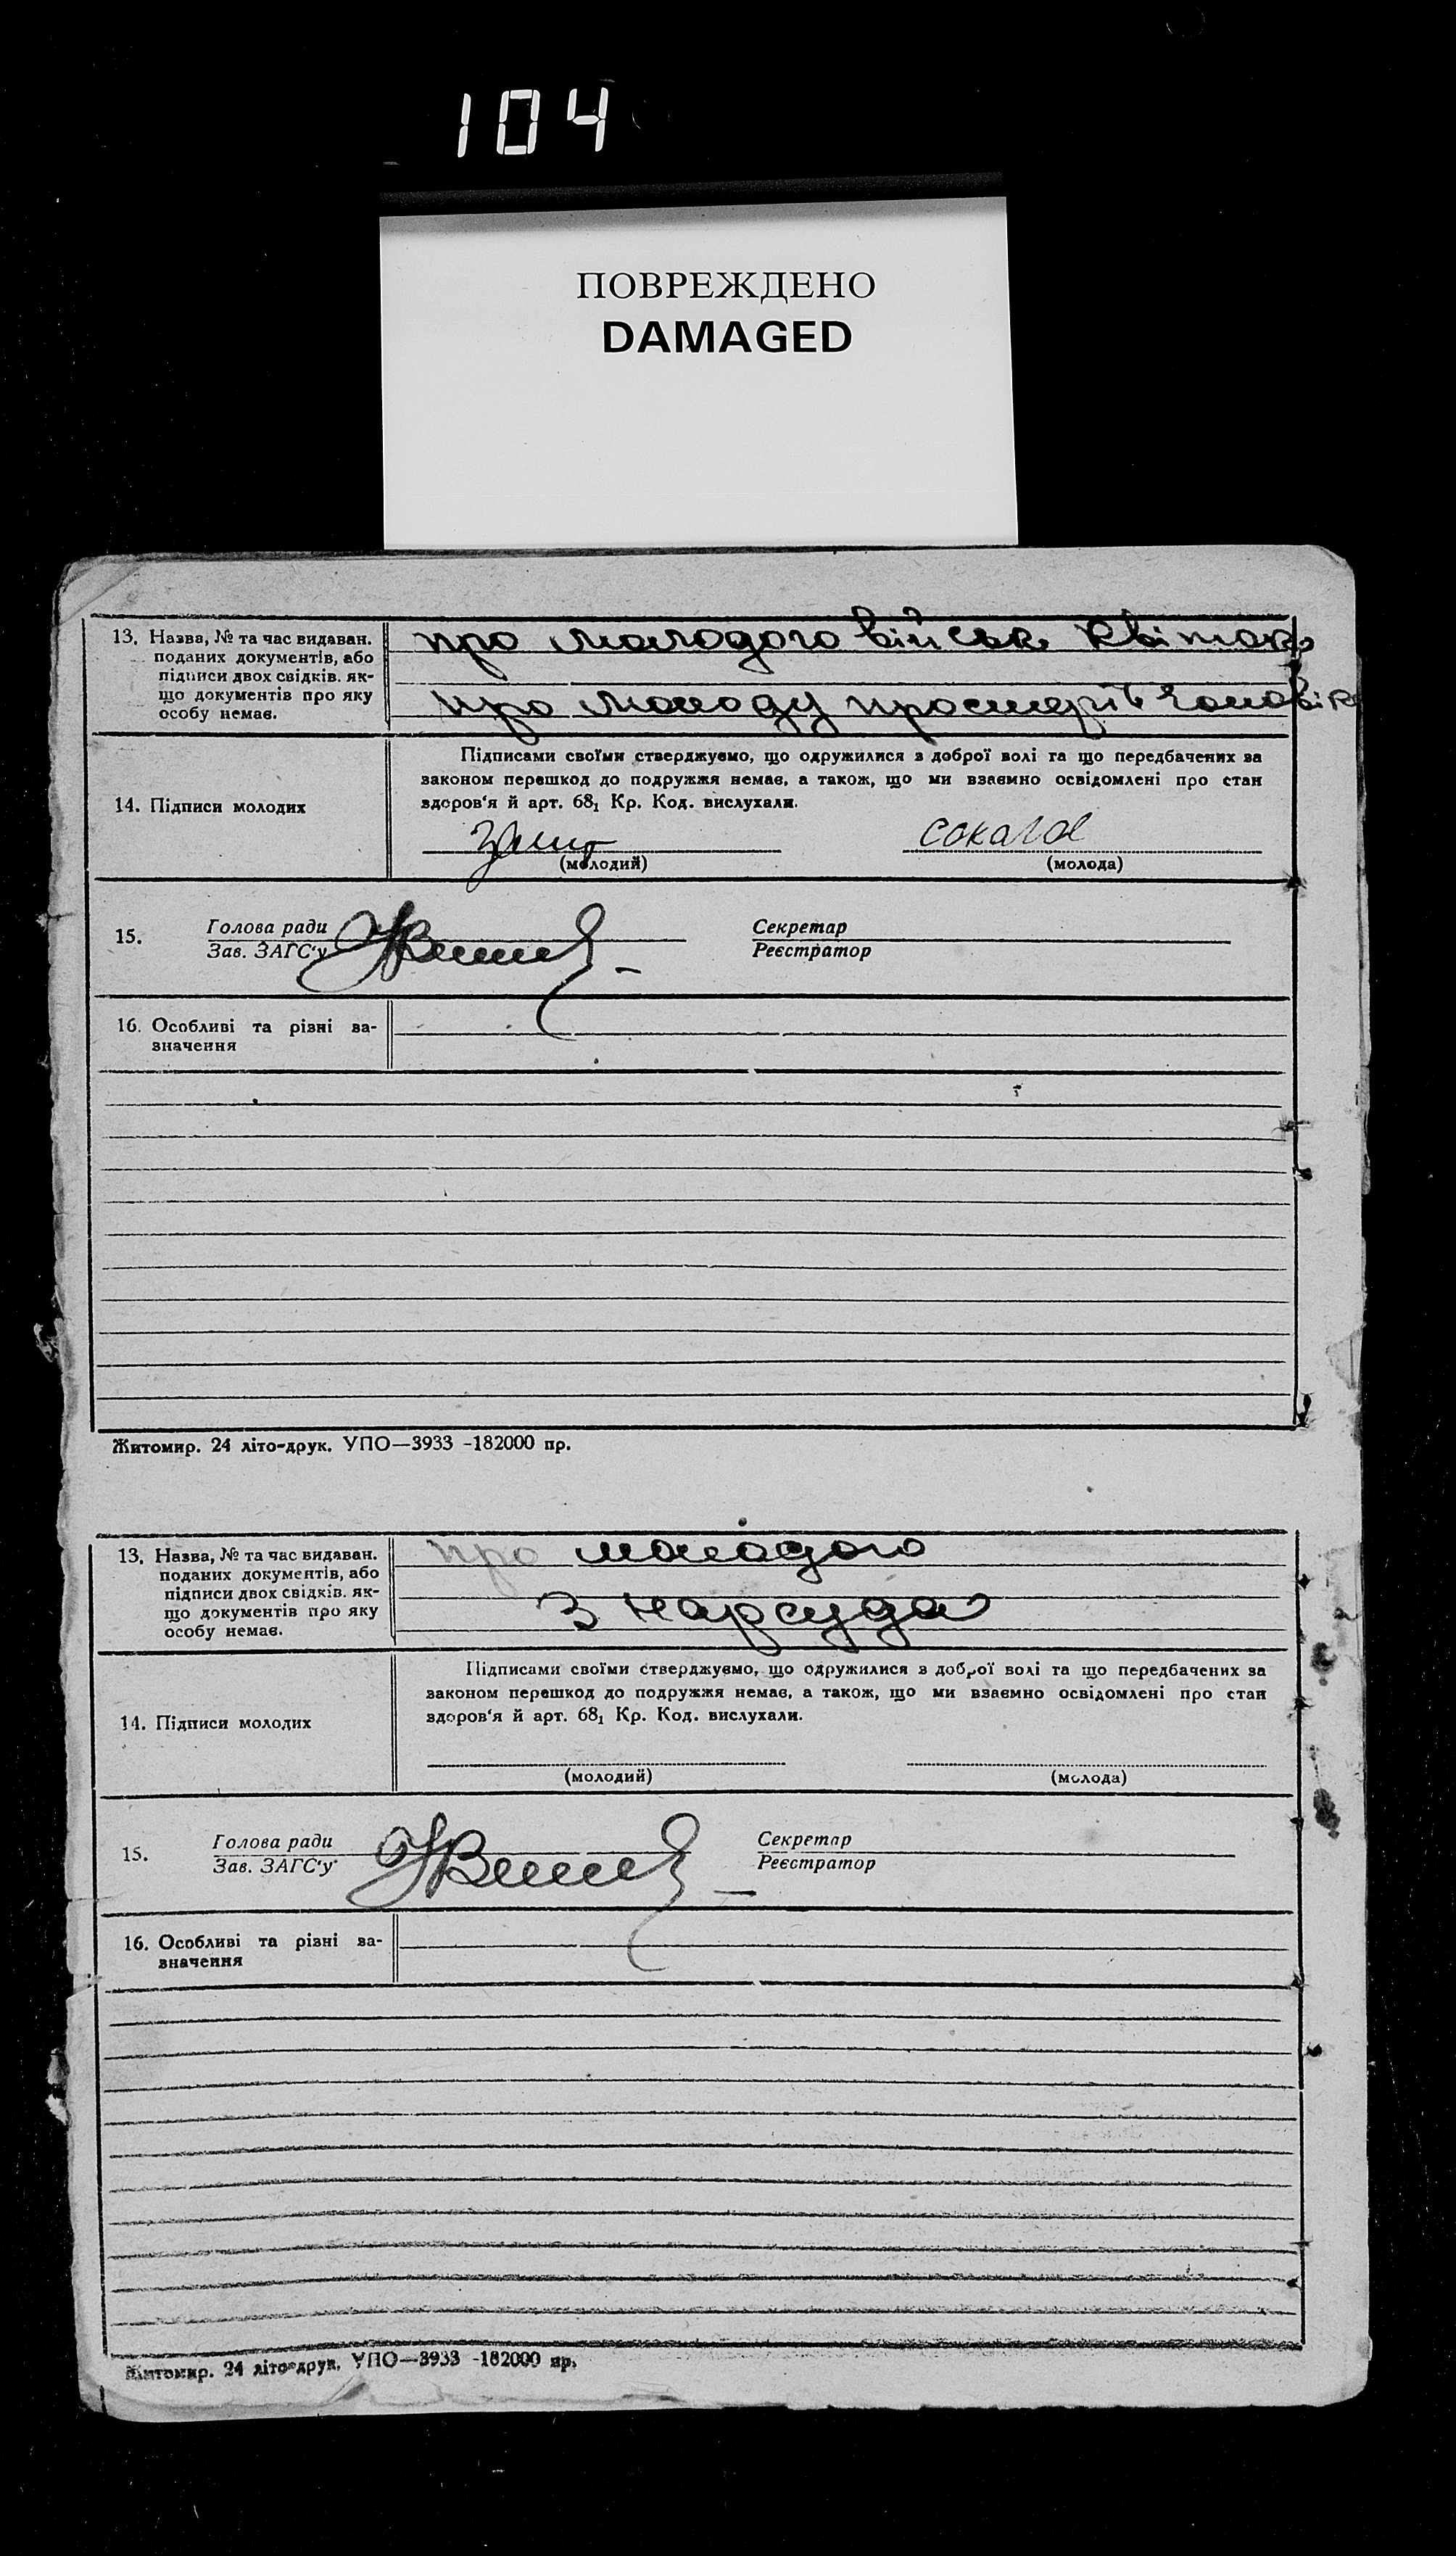 104
ПОВРЕЖДЕНО
DAMAGED
13. Назва, № та час видаван.
поданих документів, або
підписи двох свідків. як-
що документів про яку
особу немає.
про молодого військ квиток
про молоду
14. Підписи молодих
Підписами своїми стверджуємо, що одружилися з доброї волі та що передбачених за
законом перешкод до подружжя немає, а також, що ми взаємно освідомлені про стан
здоров'я й арт. 68₁ Кр. Код. вислухали.
(молодий)
(молода)
15.
Голова ради
Зав. ЗАГС'у
Секретар
Реєстратор
16. Особливі та різні за-
значення
Житомир. 24 літо-друк. УПО—3933 -182000 пр.
13. Назва, № та час видаван.
поданих документів, або
підписи двох свідків. як-
що документів про яку
особу немає.
про молодого
З нарсуда
14. Підписи молодих
Підписами своїми стверджуємо, що одружилися з доброї волі та що передбачених за
законом перешкод до подружжя немає, а також, що ми взаємно освідомлені про стан
здоров'я й арт. 68₁ Кр. Код. вислухали.
(молодий)
(молода)
15.
Голова ради
Зав. ЗАГС'у
Секретар
Реєстратор
16. Особливі та різні за-
значення
Житомир. 24 літо-друк. УПО—3933 -182000 пр.